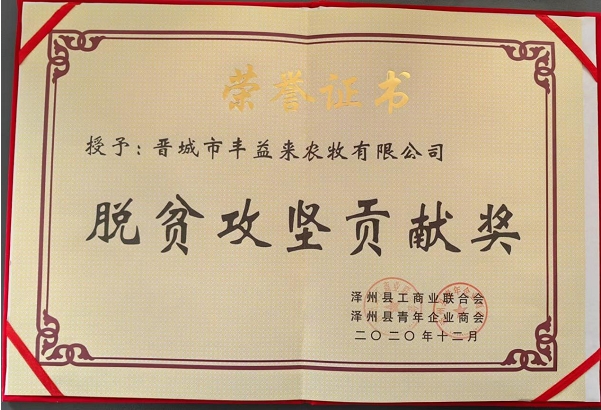 荣誉证书
授予：晋城市丰益来农牧有限公司
脱贫攻坚贡献奖
泽州县工商业联合会
泽州县青年企业商会
二〇二〇年十二月